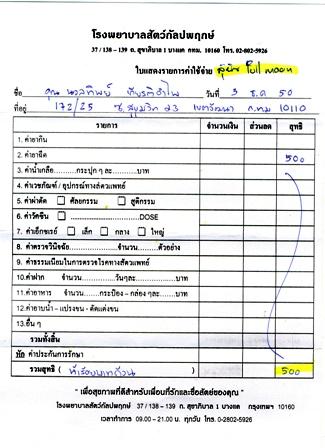 โรงพยาบาลสัตว์กัลปพฤกษ์
37 / 138 – 139 ถ. สุขาภิบาล 1 บางแค กทม. 10160 โทร. 02-802-5926
ใบแสดงรายการค่าใช้จ่าย สุนัข Full moon
ชื่อ คุณ นวลทิพย์ วันที่ 3 ธ.ค 50
ที่อยู่ 172/25 ซ.สุขุมวิท 23 เขตวัฒนา ก.ทม 10110
รายการ จำนวนเงิน ส่วนลด สุทธิ
1. ค่ายากิน
2. ค่ายาฉีด 500
3. ค่าน้ำเกลือ..........กระปุก ๆ ละ..........บาท
4. ค่าเวชภัณฑ์ / อุปกรณ์ทางสัตวแพทย์
5. ค่าผ่าตัด ศัลยกรรม สูติกรรม
6. ค่าวัคซีน ..........DOSE
7. ค่าเอ็กซเรย์ เล็ก กลาง ใหญ่
8. ค่าตรวจวินิจฉัย..........จำนวน..........ตัวอย่าง
9. ค่าธรรมเนียมในการตรวจโรคทางสัตวแพทย์
10.ค่าฝาก จำนวน..........วันๆละ..........บาท
11.ค่าอาหาร จำนวน..........กระป๋อง – กล่อง ๆละ..........บาท
12.ค่าอาบน้ำ – แปรงขน - ตัดแต่งขน
13.อื่น ๆ
รวมทั้งสิ้น
หัก ค่าประกันการรักษา
รวมสุทธิ ( ห้าร้อยบาทถ้วน ) 500
" เพื่อสุขภาพที่ดีสำหรับเพื่อนที่รักและซื่อสัตย์ของคุณ "
โรงพยาบาลสัตว์กัลปพฤกษ์ 37 / 138 – 139 ถ. สุขาภิบาล 1 บางแค กรุงเทพฯ 10160
เวลาทำการ 09.00 -21.00 น. ทุกวัน โทร. 0-2802-5926